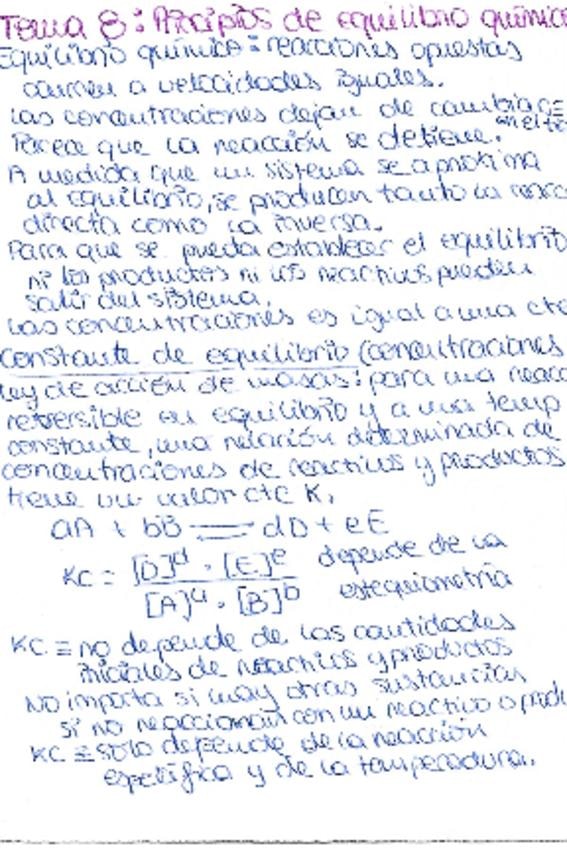 Tema 8: Principios de equilibrio químico
Equilibrio químico: reacciones opuestas
ocurren a velocidades iguales.
Las concentraciones dejan de cambiar =
Parece que la reacción se detiene. en el
A medida que un sistema se aproxima
al equilibrio, se producen tanto la reacc
directa como la inversa.
Para que se pueda establecer el equilibrio
ni los productos ni los reactivos pueden
salir del sistema.
Las concentraciones es igual a una cte
Constante de equilibrio (concentraciones
Ley de acción de masas: para una reacc
reversible en equilibrio y a una temp
constante, una relación determinada de
concentraciones de reactivos y productos
tiene un valor cte K.
aA + bB ⇌ dD + eE
KC = [D]^d · [E]^e / [A]^a · [B]^b depende de la
estequiometría
KC ≡ no depende de las cantidades
iniciales de reactivos y productos
No importa si hay otras sustancias
si no reaccionan con un reactivo o prod
KC ≡ solo depende de la reacción
específica y de la temperadura.